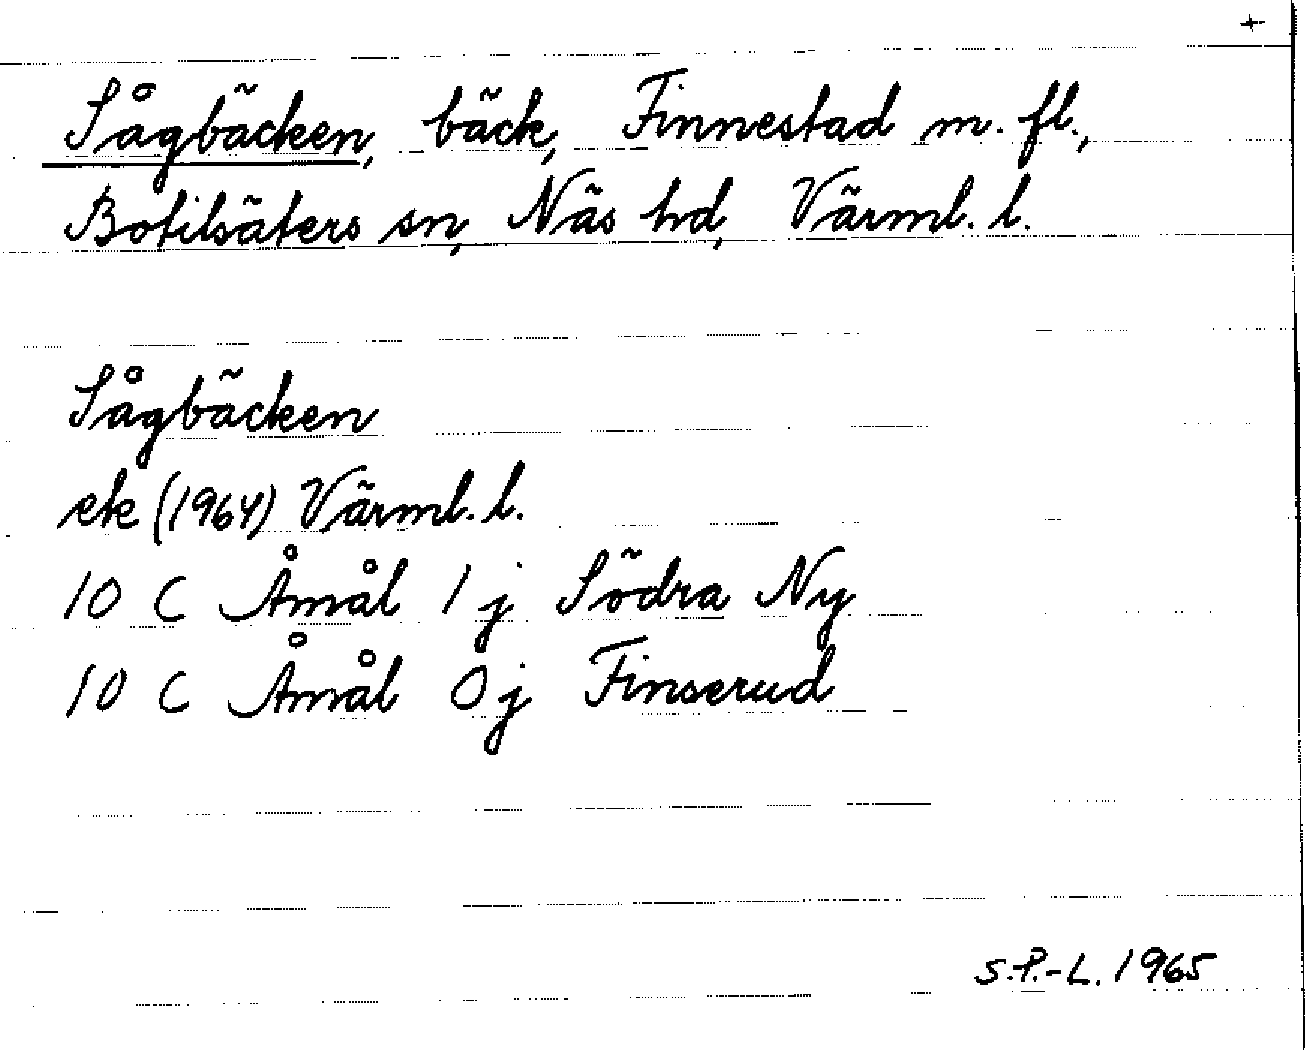 +
Sågbäcken, bäck, Finnestad m. fl.,
Botilsäters sn, Näs hd, Värml. l.
Sågbäcken
ek (1964) Värml. l.
10 C Åmål 1 j Södra Ny
10 C Åmål 0 j Finserud
S.P.-L. 1965